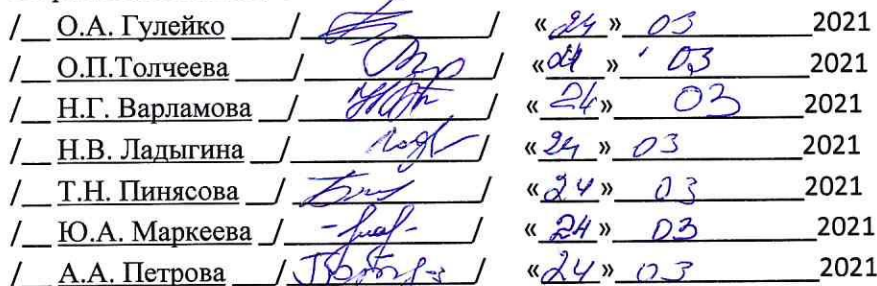 /__ О.А. Гулейко ____/ ____________/ «24» 03 ________2021
/__ О.П.Толчеева ____/ ____________/ «24» 03 ________2021
/__ Н.Г. Варламова __/ ____________/ «24» 03 ________2021
/__ Н.В. Ладыгина __/ ____________/ «24» 03 ________2021
/__ Т.Н. Пинясова __/ ____________/ «24» 03 ________2021
/__ Ю.А. Маркеева _/ ____________/ «24» 03 ________2021
/__ А.А. Петрова __/ ____________/ «24» 03 ________2021